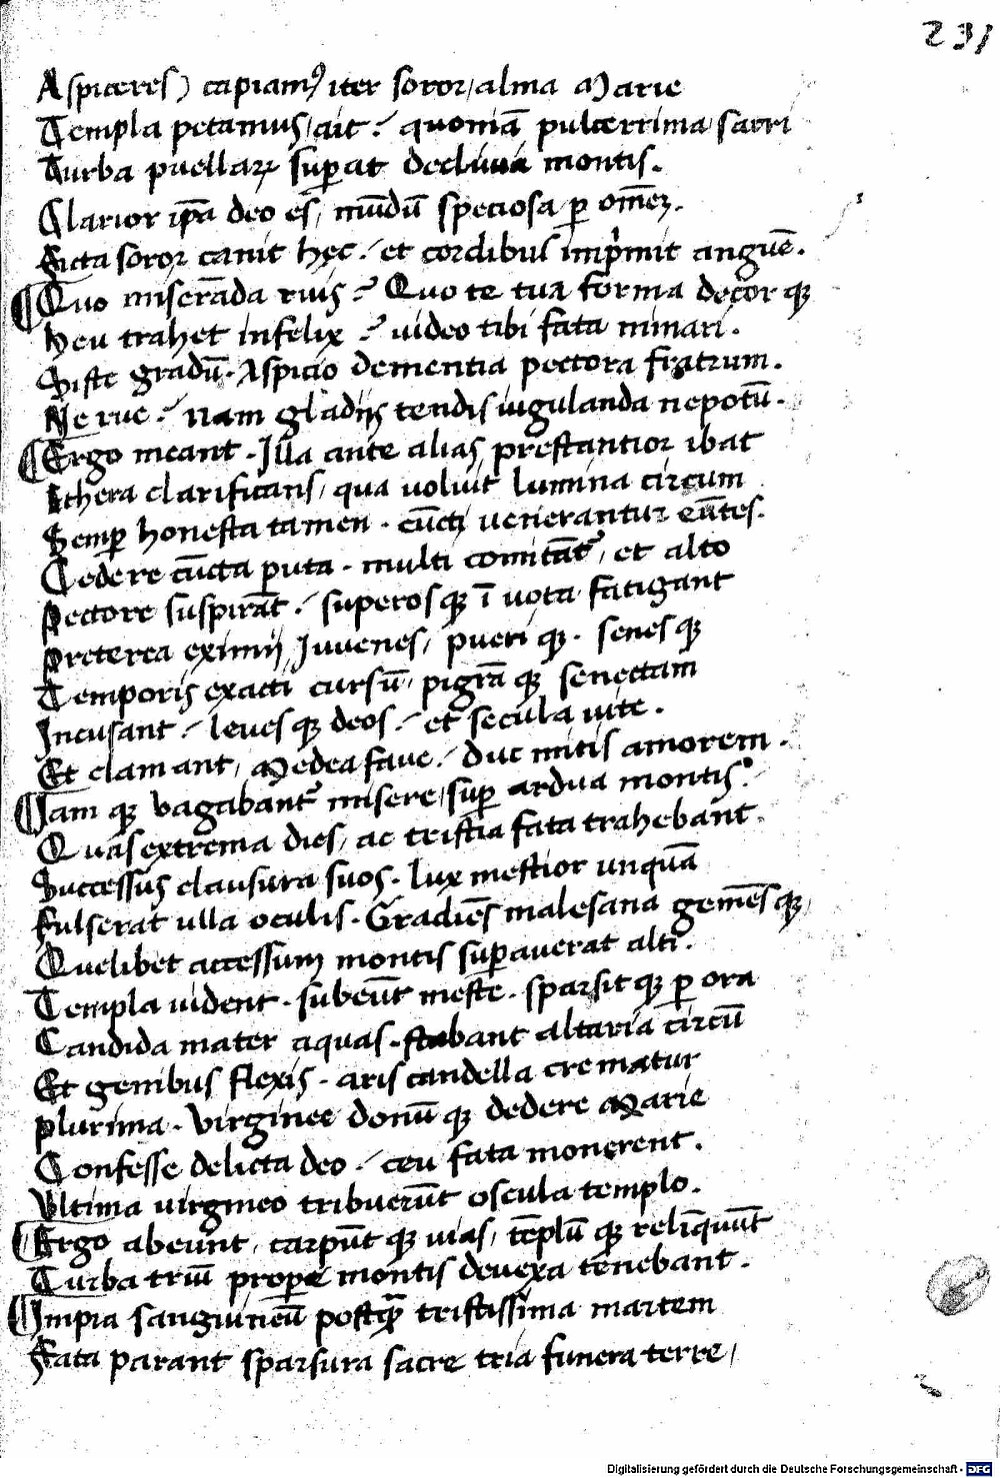 231
Aspiceres) capiamꝰ iter soror, alma Marie
Templa petamus, ait / quoniā pulcerrima sacri
Turba puellaꝝ suꝑat decliuia montis.
Clarior ip̄a deo es, mūdū speciosa ꝑ om̄eꝫ.
Ficta soror canit hęc / et cordibus imp̄mit anguē.
¶ Quo miserāda ruis? Quo te tua forma decor qꝫ
Heu trahet infelix? uideo tibi fata minari.
Siste gradū. Aspicio dementia pectora fratrum.
Ne rue / nam gladijs tendis iugulanda nepotū.
¶ Ergo meant. Illa ante alias prestantior ibat
Ethera clarificans, qua uoluit lumina circum
Semꝑ honesta tamen. cūcti uenerantur eūtes.
Cedere cūcta puta. multi comitātr, et alto
Pectore suspirāt / superos qꝫ ī uota fatigant
Preterea eximij Iuuenes, pueri qꝫ. senes qꝫ
Temporis exacti cursū, pigrā qꝫ senectam
Incusant / leues qꝫ deos / et secula uite.
Et clamant, Medea faue / duc mitis amorem.
¶ Iam qꝫ vagabantr misere, suꝑ ardua montis.
Quas extrema dies, ac tristia fata trahebant.
Successus clausura suos. lux mestior unquā
Fulserat ulla oculis. Gradiēs malesana gemēs qꝫ,
Quelibet accessum montis suꝑauerat alti.
Templa uident. subeūt meste. sparsit qꝫ ꝑ ora
Candida mater aquas. stabant altaria circū
Et genibus flexis. aris candella crematur
Plurima. Virginee donū qꝫ dedere Marie
Confesse delicta deo / ceu fata monerent.
Vltima uirgineo tribuerūt oscula templo.
¶ Ergo abeunt, carpūt qꝫ uias, tēplū qꝫ relīquūt
Turba triū prope montis deuexa tenebant.
¶ Impia sanguineū postꝙ̄ tristissima martem
Fata parant sparsura sacre tria funera terre,
Digitalisierung gefördert durch die Deutsche Forschungsgemeinschaft - DFG